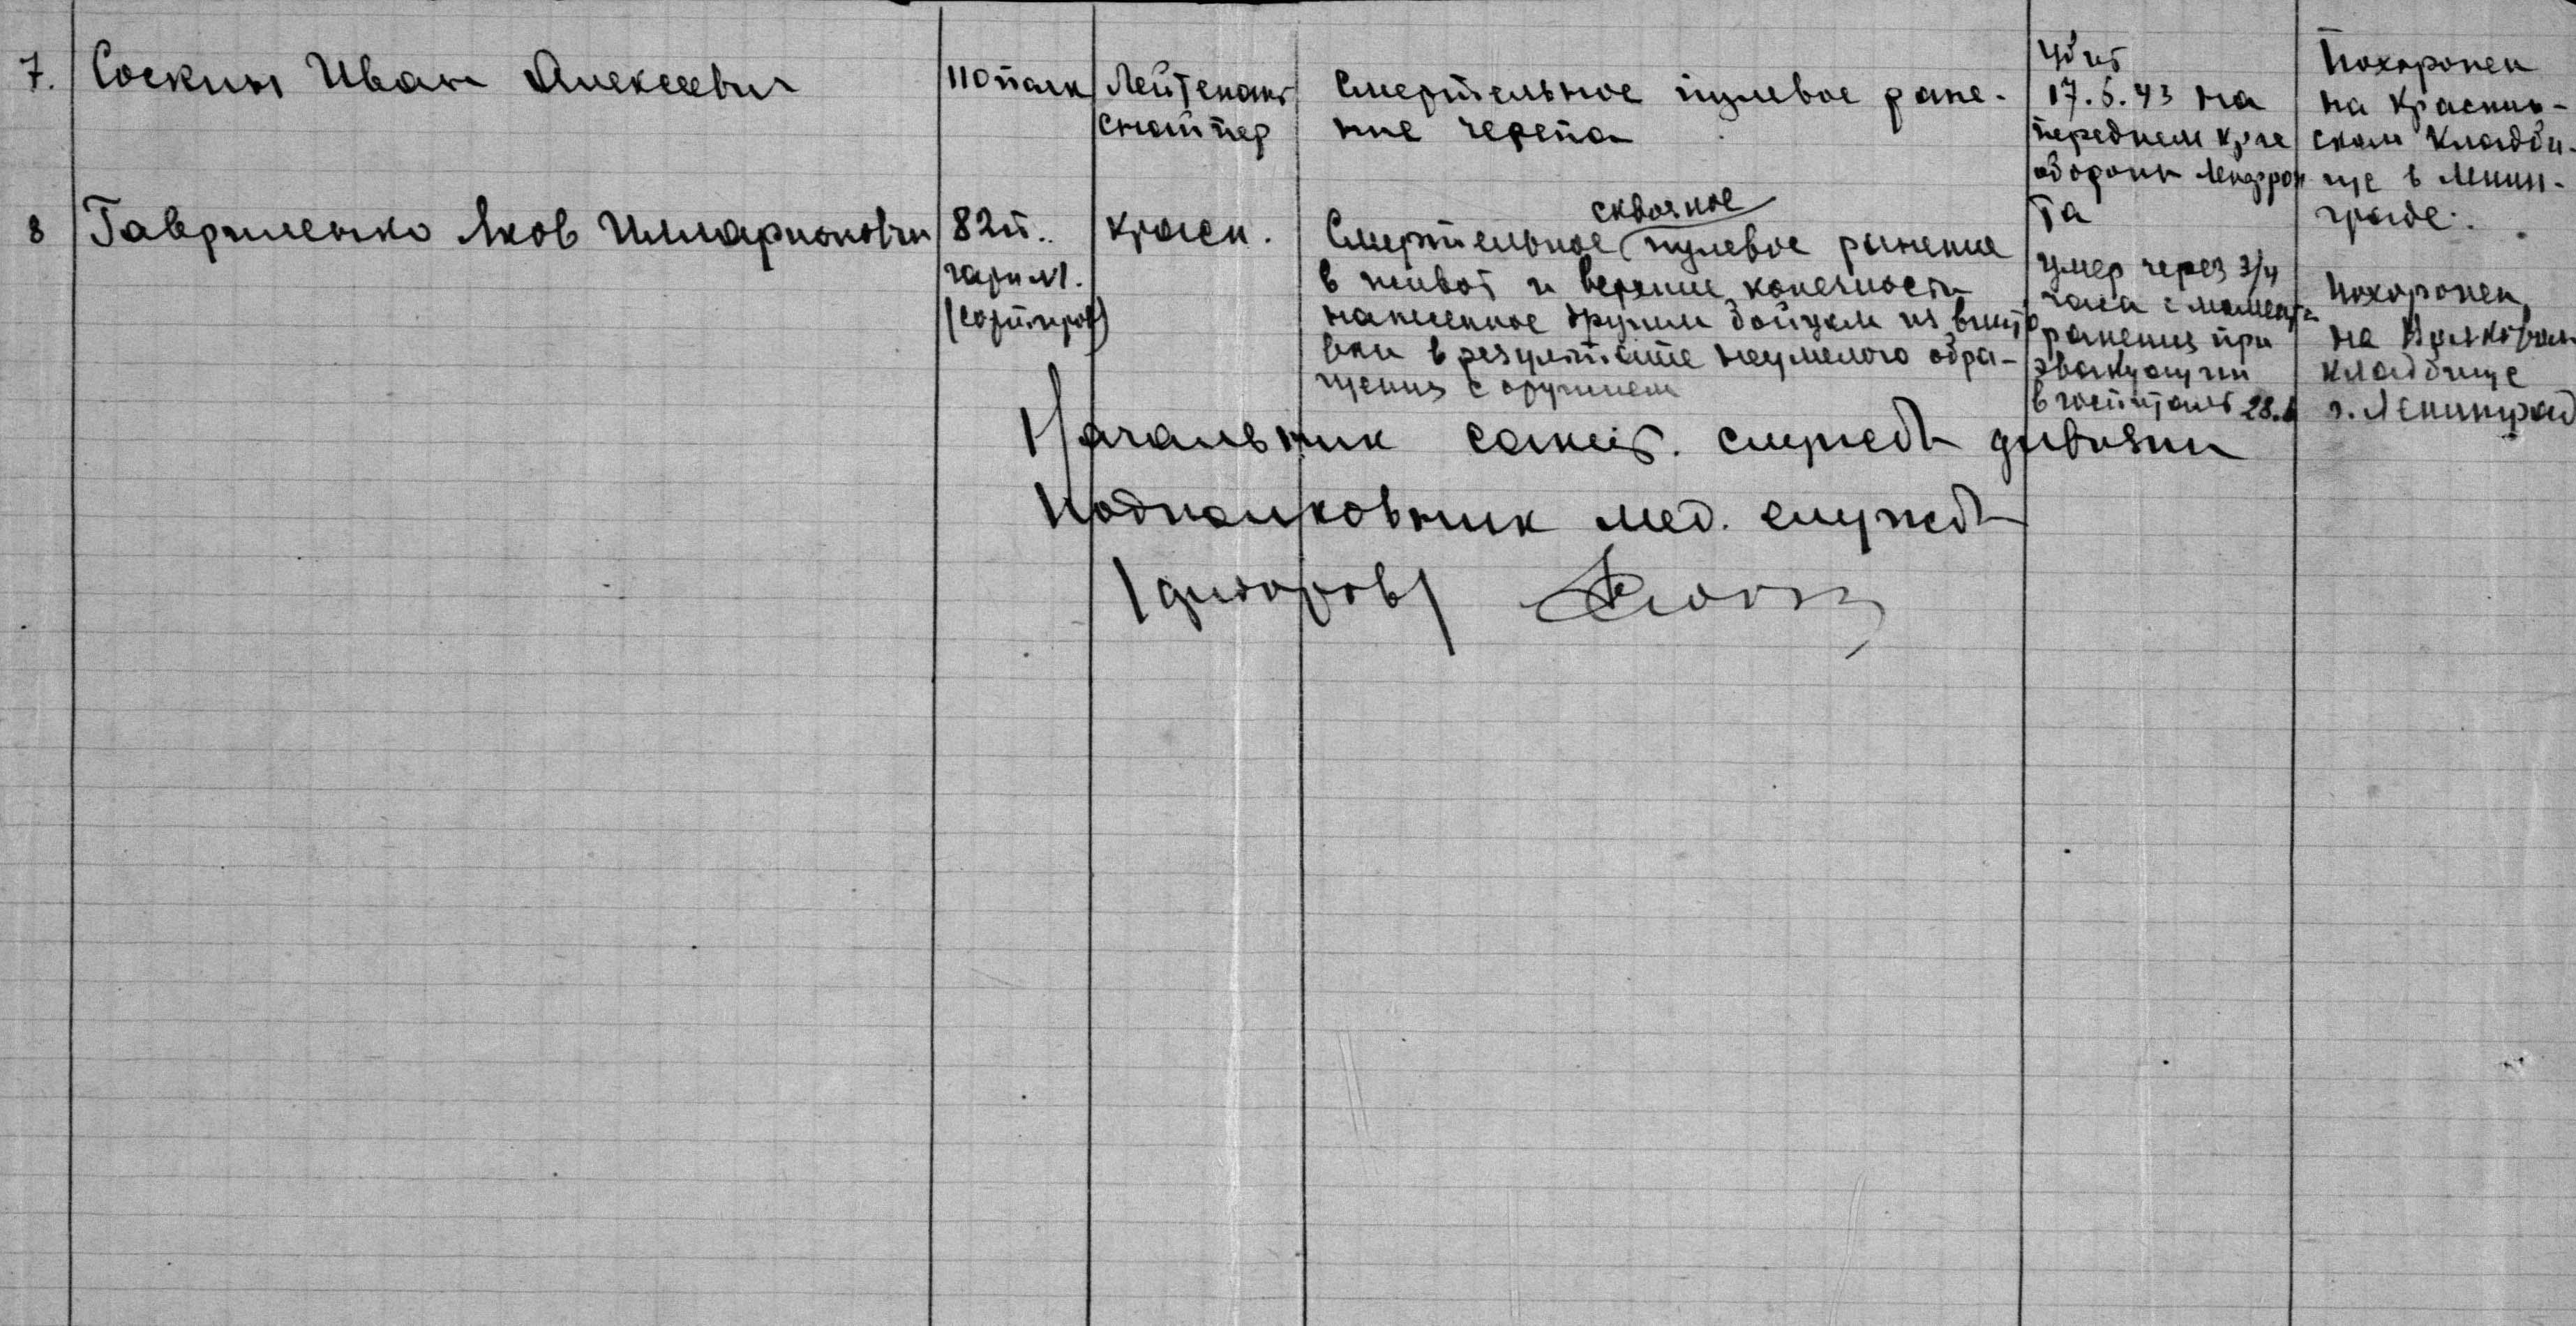 7. Соскин Иван Алексеевич
110 полк
Лейтенант
снайпер
Смертельное пулевое ране-
ние черепа
Убит
17.5.43 на
переднем крае
обороны Ленфрон
та
Похоронен
на Красnen-
ском кладби-
ще в Ленин-
граде.
8 Гавриленко Яков Илларионович
82 п.
красн.
сквозное
Смертельное пулевое ранение
в живот и верхние конечности
нанесенное другим бойцом из винто
вки в результате неумелого обра-
щения с оружием
Умер через 3/4
часа с момента
ранения при
эвакуации
в госпиталь 28.
Похоронен
на Волковом
кладбище
г. Ленинград
Начальник санит. службы дивизии
Подполковник мед. службы